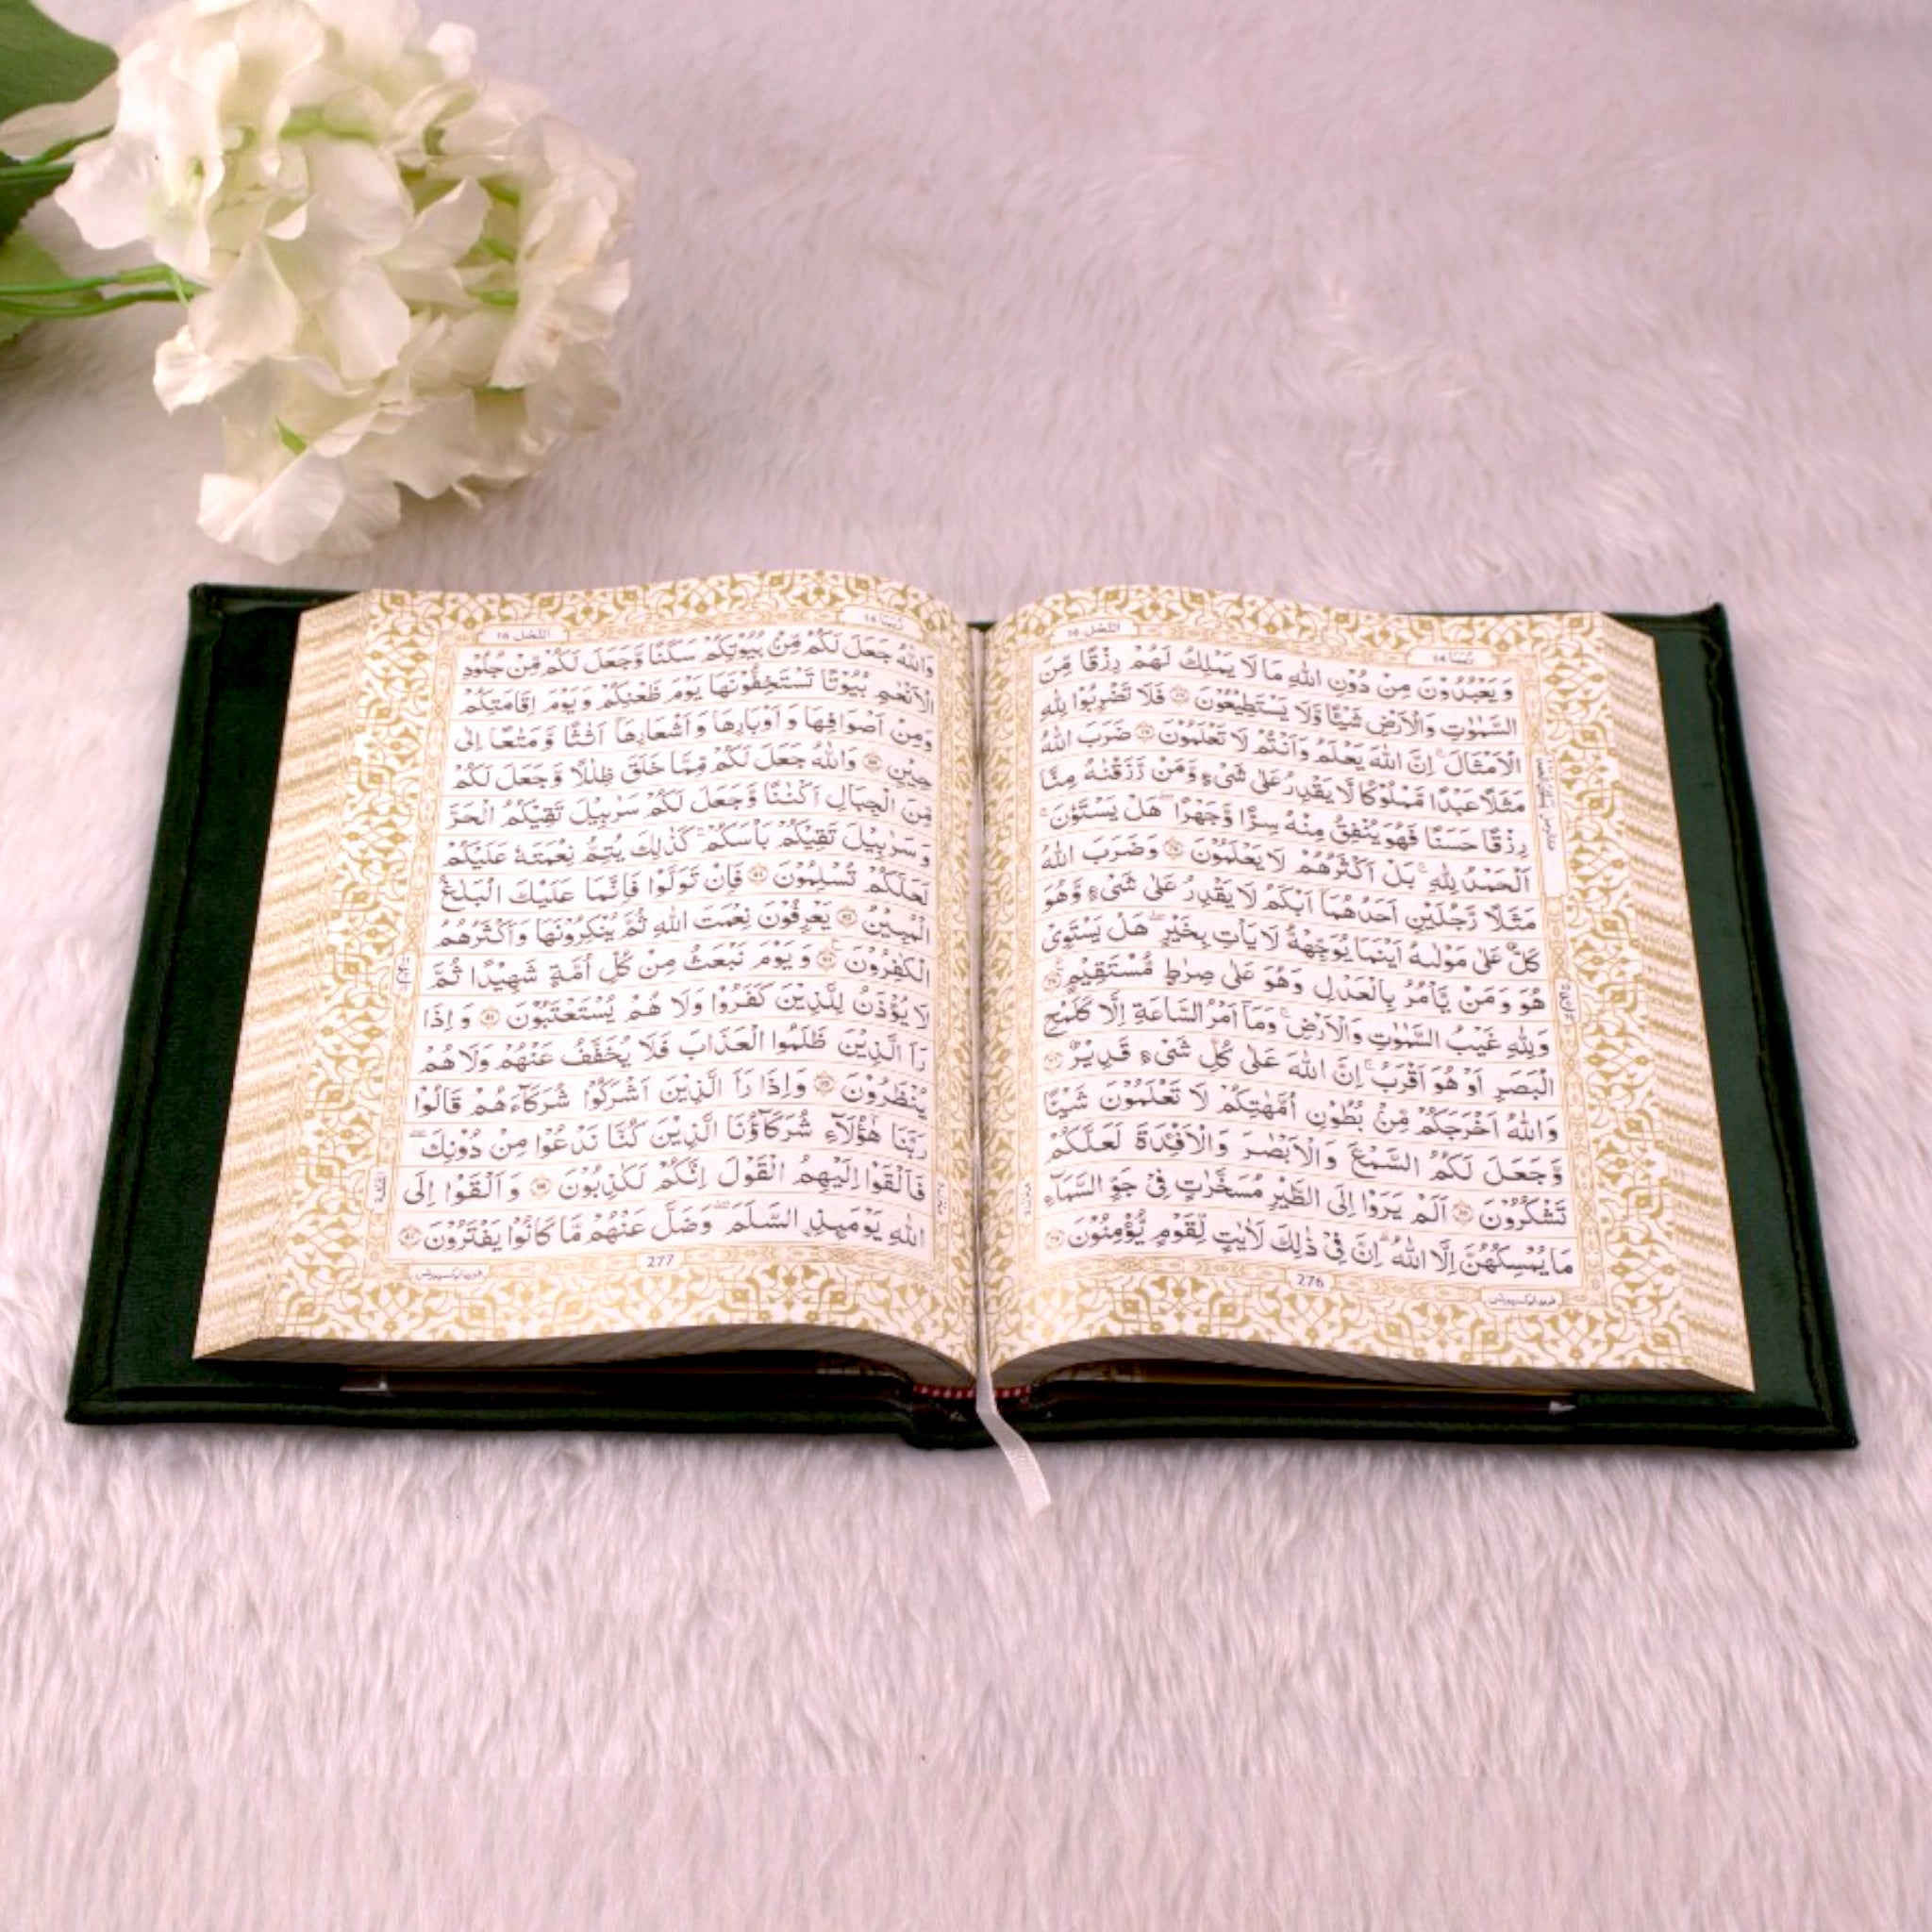 النَّحْل 16
رُبَمَا 14
وَيَعْبُدُوْنَ مِنْ دُوْنِ اللّٰهِ مَا لَا يَمْلِكُ لَهُمْ رِزْقًا مِّنَ
السَّمٰوٰتِ وَالْاَرْضِ شَيْـًٔا وَّلَا يَسْتَطِيْعُوْنَ ۚ‏﴿۷۳﴾ فَلَا تَضْرِبُوْا لِلّٰهِ
الْاَمْثَالَ ؕ اِنَّ اللّٰهَ يَعْلَمُ وَاَنْتُمْ لَا تَعْلَمُوْنَ ﴿۷۴﴾ ضَرَبَ اللّٰهُ
مَثَلًا عَبْدًا مَّمْلُوْكًا لَّا يَقْدِرُ عَلٰى شَىْءٍ وَّمَنْ رَّزَقْنٰهُ مِنَّا
رِزْقًا حَسَنًا فَهُوَ يُنْفِقُ مِنْهُ سِرًّا وَّجَهْرًا ؕ هَلْ يَسْتَوٗنَ ؕ
اَلْحَمْدُ لِلّٰهِ ؕ بَلْ اَكْثَرُهُمْ لَا يَعْلَمُوْنَ ﴿۷۵﴾ وَضَرَبَ اللّٰهُ
مَثَلًا رَّجُلَيْنِ اَحَدُهُمَاۤ اَبْكَمُ لَا يَقْدِرُ عَلٰى شَىْءٍ وَّهُوَ
كَلٌّ عَلٰى مَوْلٰىهُ ۙ اَيْنَمَا يُوَجِّهْهُّ لَا يَاْتِ بِخَيْرٍ ؕ هَلْ يَسْتَوِىْ
هُوَ ۙ وَمَنْ يَّاْمُرُ بِالْعَدْلِ ۙ وَهُوَ عَلٰى صِرَاطٍ مُّسْتَقِيْمٍ ﴿۷۶﴾
وَلِلّٰهِ غَيْبُ السَّمٰوٰتِ وَالْاَرْضِ ؕ وَمَاۤ اَمْرُ السَّاعَةِ اِلَّا كَلَمْحِ
الْبَصَرِ اَوْ هُوَ اَقْرَبُ ؕ اِنَّ اللّٰهَ عَلٰى كُلِّ شَىْءٍ قَدِيْرٌ ﴿۷۷﴾
وَاللّٰهُ اَخْرَجَكُمْ مِّنْۢ بُطُوْنِ اُمَّهٰتِكُمْ لَا تَعْلَمُوْنَ شَيْـًٔا ۙ
وَّجَعَلَ لَكُمُ السَّمْعَ وَالْاَبْصٰرَ وَالْاَفْـِٕدَةَ ۙ لَعَلَّكُمْ
تَشْكُرُوْنَ ﴿۷۸﴾ اَلَمْ يَرَوْا اِلَى الطَّيْرِ مُسَخَّرٰتٍ فِىْ جَوِّ السَّمَآءِ ؕ
مَا يُمْسِكُهُنَّ اِلَّا اللّٰهُ ؕ اِنَّ فِىْ ذٰلِكَ لَاٰيٰتٍ لِّقَوْمٍ يُّؤْمِنُوْنَ ﴿۷۹﴾
276
النَّحْل 16
رُبَمَا 14
وَاللّٰهُ جَعَلَ لَكُمْ مِّنْۢ بُيُوْتِكُمْ سَكَنًا وَّجَعَلَ لَكُمْ مِّنْ جُلُوْدِ
الْاَنْعَامِ بُيُوْتًا تَسْتَخِفُّوْنَهَا يَوْمَ ظَعْنِكُمْ وَيَوْمَ اِقَامَتِكُمْ ۙ
وَمِنْ اَصْوَافِهَا وَاَوْبَارِهَا وَاَشْعَارِهَاۤ اَثٰثًا وَّمَتٰعًا اِلٰى
حِيْنٍ ﴿۸۰﴾ وَاللّٰهُ جَعَلَ لَكُمْ مِّمَّا خَلَقَ ظِلٰلًا وَّجَعَلَ لَكُمْ
مِّنَ الْجِبَالِ اَكْنٰنًا وَّجَعَلَ لَكُمْ سَرٰبِيْلَ تَقِيْكُمُ الْحَرَّ
وَسَرٰبِيْلَ تَقِيْكُمْ بَاْسَكُمْ ؕ كَذٰلِكَ يُتِمُّ نِعْمَتَهٗ عَلَيْكُمْ
لَعَلَّكُمْ تُسْلِمُوْنَ ﴿۸۱﴾ فَاِنْ تَوَلَّوْا فَاِنَّمَا عَلَيْكَ الْبَلٰغُ
الْمُبِيْنُ ﴿۸۲﴾ يَعْرِفُوْنَ نِعْمَتَ اللّٰهِ ثُمَّ يُنْكِرُوْنَهَا وَاَكْثَرُهُمُ
الْكٰفِرُوْنَ ﴿۸۳﴾ وَيَوْمَ نَبْعَثُ مِنْ كُلِّ اُمَّةٍ شَهِيْدًا ثُمَّ
لَا يُؤْذَنُ لِلَّذِيْنَ كَفَرُوْا وَلَا هُمْ يُسْتَعْتَبُوْنَ ﴿۸۴﴾ وَاِذَا
رَاَ الَّذِيْنَ ظَلَمُوا الْعَذَابَ فَلَا يُخَفَّفُ عَنْهُمْ وَلَا هُمْ
يُنْظَرُوْنَ ﴿۸۵﴾ وَاِذَا رَاَ الَّذِيْنَ اَشْرَكُوْا شُرَكَآءَهُمْ قَالُوْا
رَبَّنَا هٰٓؤُلَآءِ شُرَكَآؤُنَا الَّذِيْنَ كُنَّا نَدْعُوْا مِنْ دُوْنِكَ ۚ
فَاَلْقَوْا اِلَيْهِمُ الْقَوْلَ اِنَّكُمْ لَكٰذِبُوْنَ ﴿۸۶﴾ وَاَلْقَوْا اِلَى
اللّٰهِ يَوْمَئِذِ اۨلسَّلَمَ وَضَلَّ عَنْهُمْ مَّا كَانُوْا يَفْتَرُوْنَ ﴿۸۷﴾
277